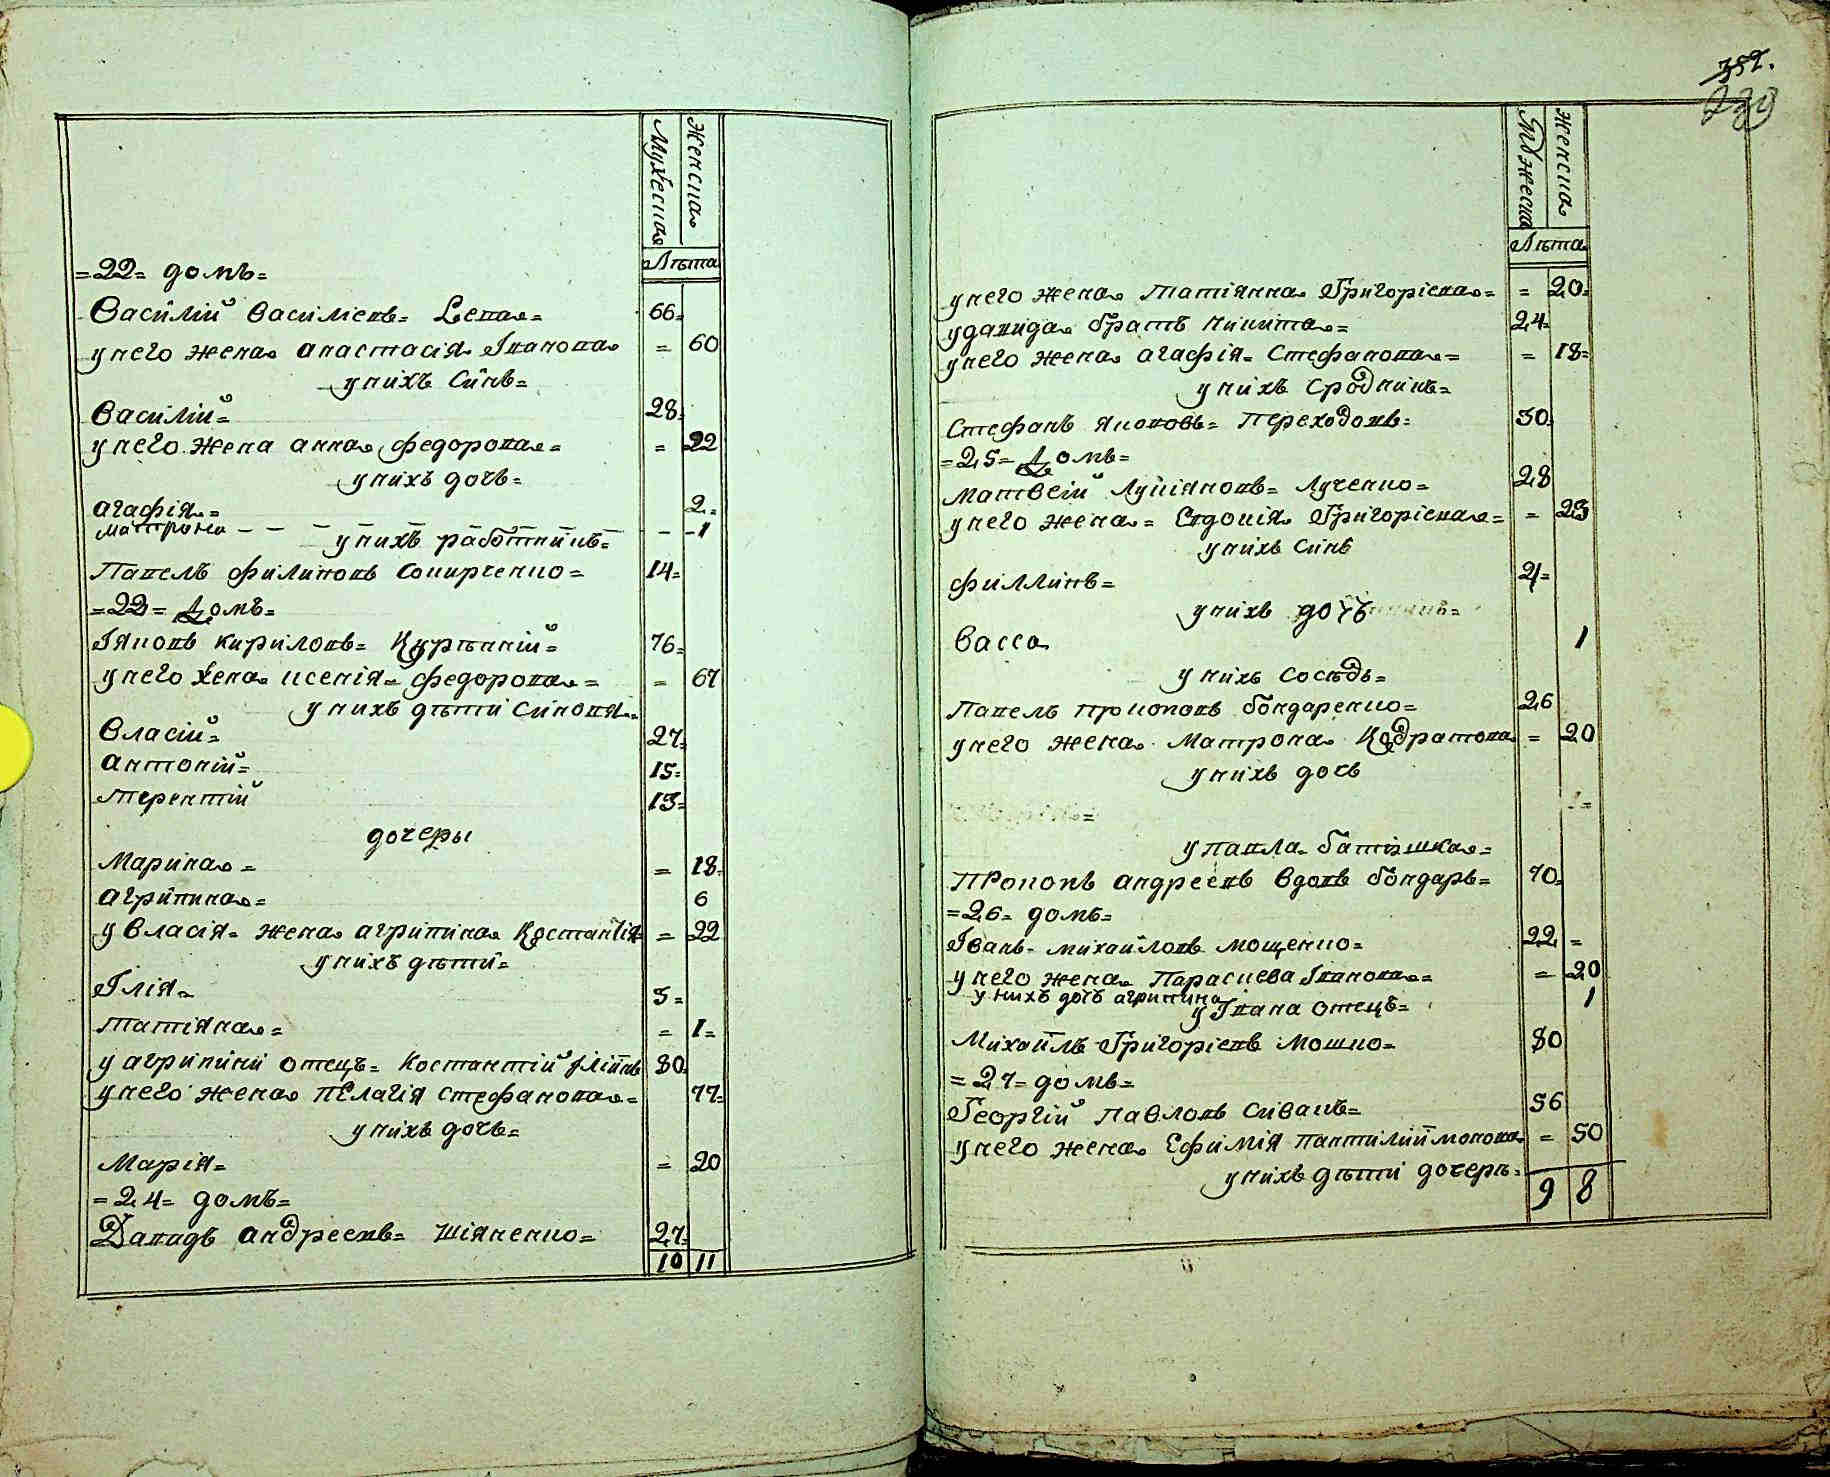 Мужеска
Женска
Лѣта
=22= домъ=
Василий Василіевъ= Lепа= 66=
у него жена анастасія Івановна = 60
у нихъ Синъ=
Василій= 28=
у него жена анна федорова= = 22
у нихъ дочъ=
агафія= 2=
матрона - - - - -1
у нихъ работникъ=
Павелъ филиповъ 14=
=23= домъ=
Іяковъ кириловъ= 76=
у него жена ксенія федорова= = 67
у нихъ дѣти Синовя=
Власій= 27=
антоній= 15=
терентій 13=
дочеры
Марина= = 18=
агрипина= 6
у Власія жена агрипина Костантія = 22
у нихъ дѣти=
Ілія= 3=
татіяна= = 1=
у агрипини отецъ= Костантій 80
у него жена пелагія стефанова= 77=
у нихъ дочъ=
Марія= = 20
=24= домъ=
Давидъ андреевъ= Шіяненко= 27=
10 11
352.
239
Мужеска
Женска
Лѣта
у него жена татіянна Григоріева= = 20=
у давида братъ никита= 24=
у него жена агафія стефанова= = 18=
у нихъ сродникъ=
Стефанъ якововъ= Переходовъ= 30=
=25= Домъ=
матвеій Лукіяновъ= Лученко= 28
у него жена= Евдокія Григоріева= = 23
у нихъ синъ
филлипъ= 2=
у нихъ дочъ
Васса 1
у нихъ сосѣдъ=
Павелъ прокоповъ бондаренко= 26
у него жена Матрона Кодратова = 20
у нихъ дочъ
у павла батюшка=
Прокопъ андреевъ вдовъ бондарь= 70=
=26= домъ=
Іванъ михайловъ мощенко= 22 =
у него жена Параскева Іванова= = 20
у нихъ дочъ агрипина 1
у Івана отецъ=
Михайлъ Григоріевъ Мошко= 80
=27= домъ=
Георгій павловъ Сивацъ= 56
у него жена Ефимія пантилиймонова = 50
у нихъ дѣти дочери=
9 8